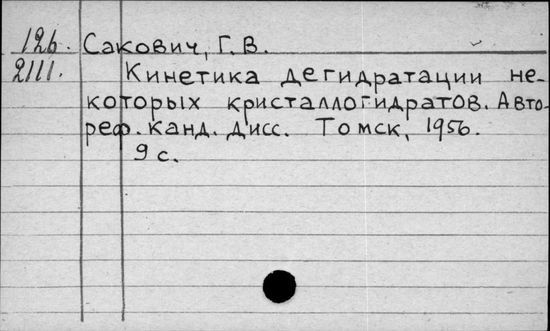 126. Сакович, Г. В.
2111. Кинетика дегидратации не-
которых кристаллогидратов. Авто-
реф. канд. дисс. Томск, 1956.
9 с.